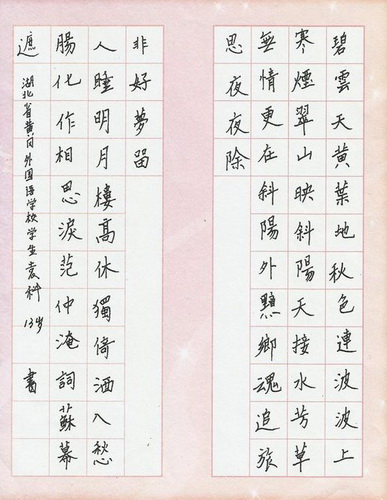 碧雲天黃葉地秋色連波波上
寒煙翠山映斜陽天接水芳草
無情更在斜陽外黯鄉魂追旅
思夜夜除
非好夢留
人睡明月樓高休獨倚酒入愁
腸化作相思淚范仲淹詞蘇幕
遮 湖北省黄冈外国语学校学生袁科 13岁 書